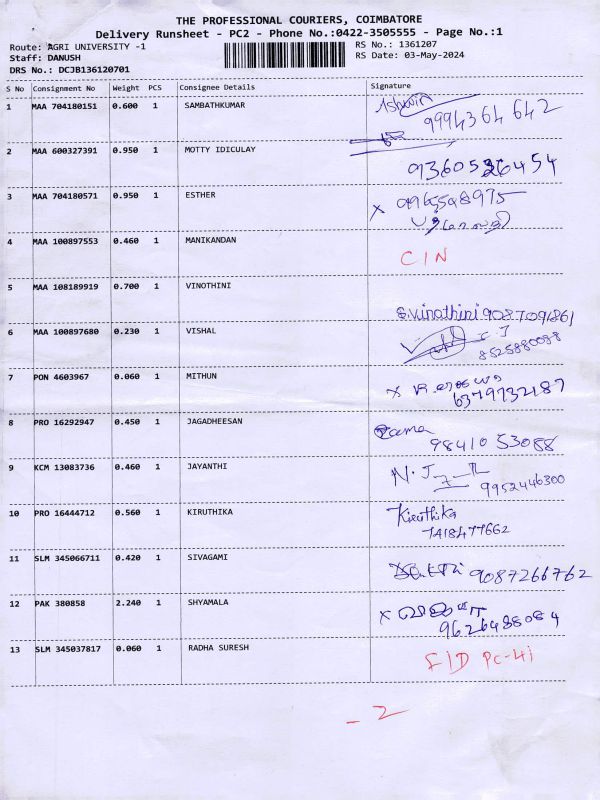 THE PROFESSIONAL COURIERS, COIMBATORE
Delivery Runsheet - PC2 - Phone No.:0422-3505555 - Page No.:1
Route: AGRI UNIVERSITY -1
RS No.: 1361207
Staff: DANUSH
RS Date: 03-May-2024
DRS No.: DCJB136120701
S No Consignment No Weight PCS Consignee Details Signature
1 MAA 704180151 0.600 1 SAMBATHKUMAR Ashwin
9994364642
2 MAA 600327391 0.950 1 MOTTY IDICULAY
9360526454
3 MAA 704180571 0.950 1 ESTHER x 9965598975
4 MAA 100897553 0.460 1 MANIKANDAN
C/N
5 MAA 108189919 0.700 1 VINOTHINI
S.Vinothini 9087091861
6 MAA 100897680 0.230 1 VISHAL
8525880098
7 PON 4603967 0.060 1 MITHUN
x
6379732187
8 PRO 16292947 0.450 1 JAGADHEESAN Rama
9841053088
9 KCM 13083736 0.460 1 JAYANTHI N.J
9952446300
10 PRO 16444712 0.560 1 KIRUTHIKA Kiruthika
7418477662
11 SLM 345066711 0.420 1 SIVAGAMI
9087266762
12 PAK 380858 2.240 1 SHYAMALA x
9626488084
13 SLM 345037817 0.060 1 RADHA SURESH
F/D PC-4i
- 2